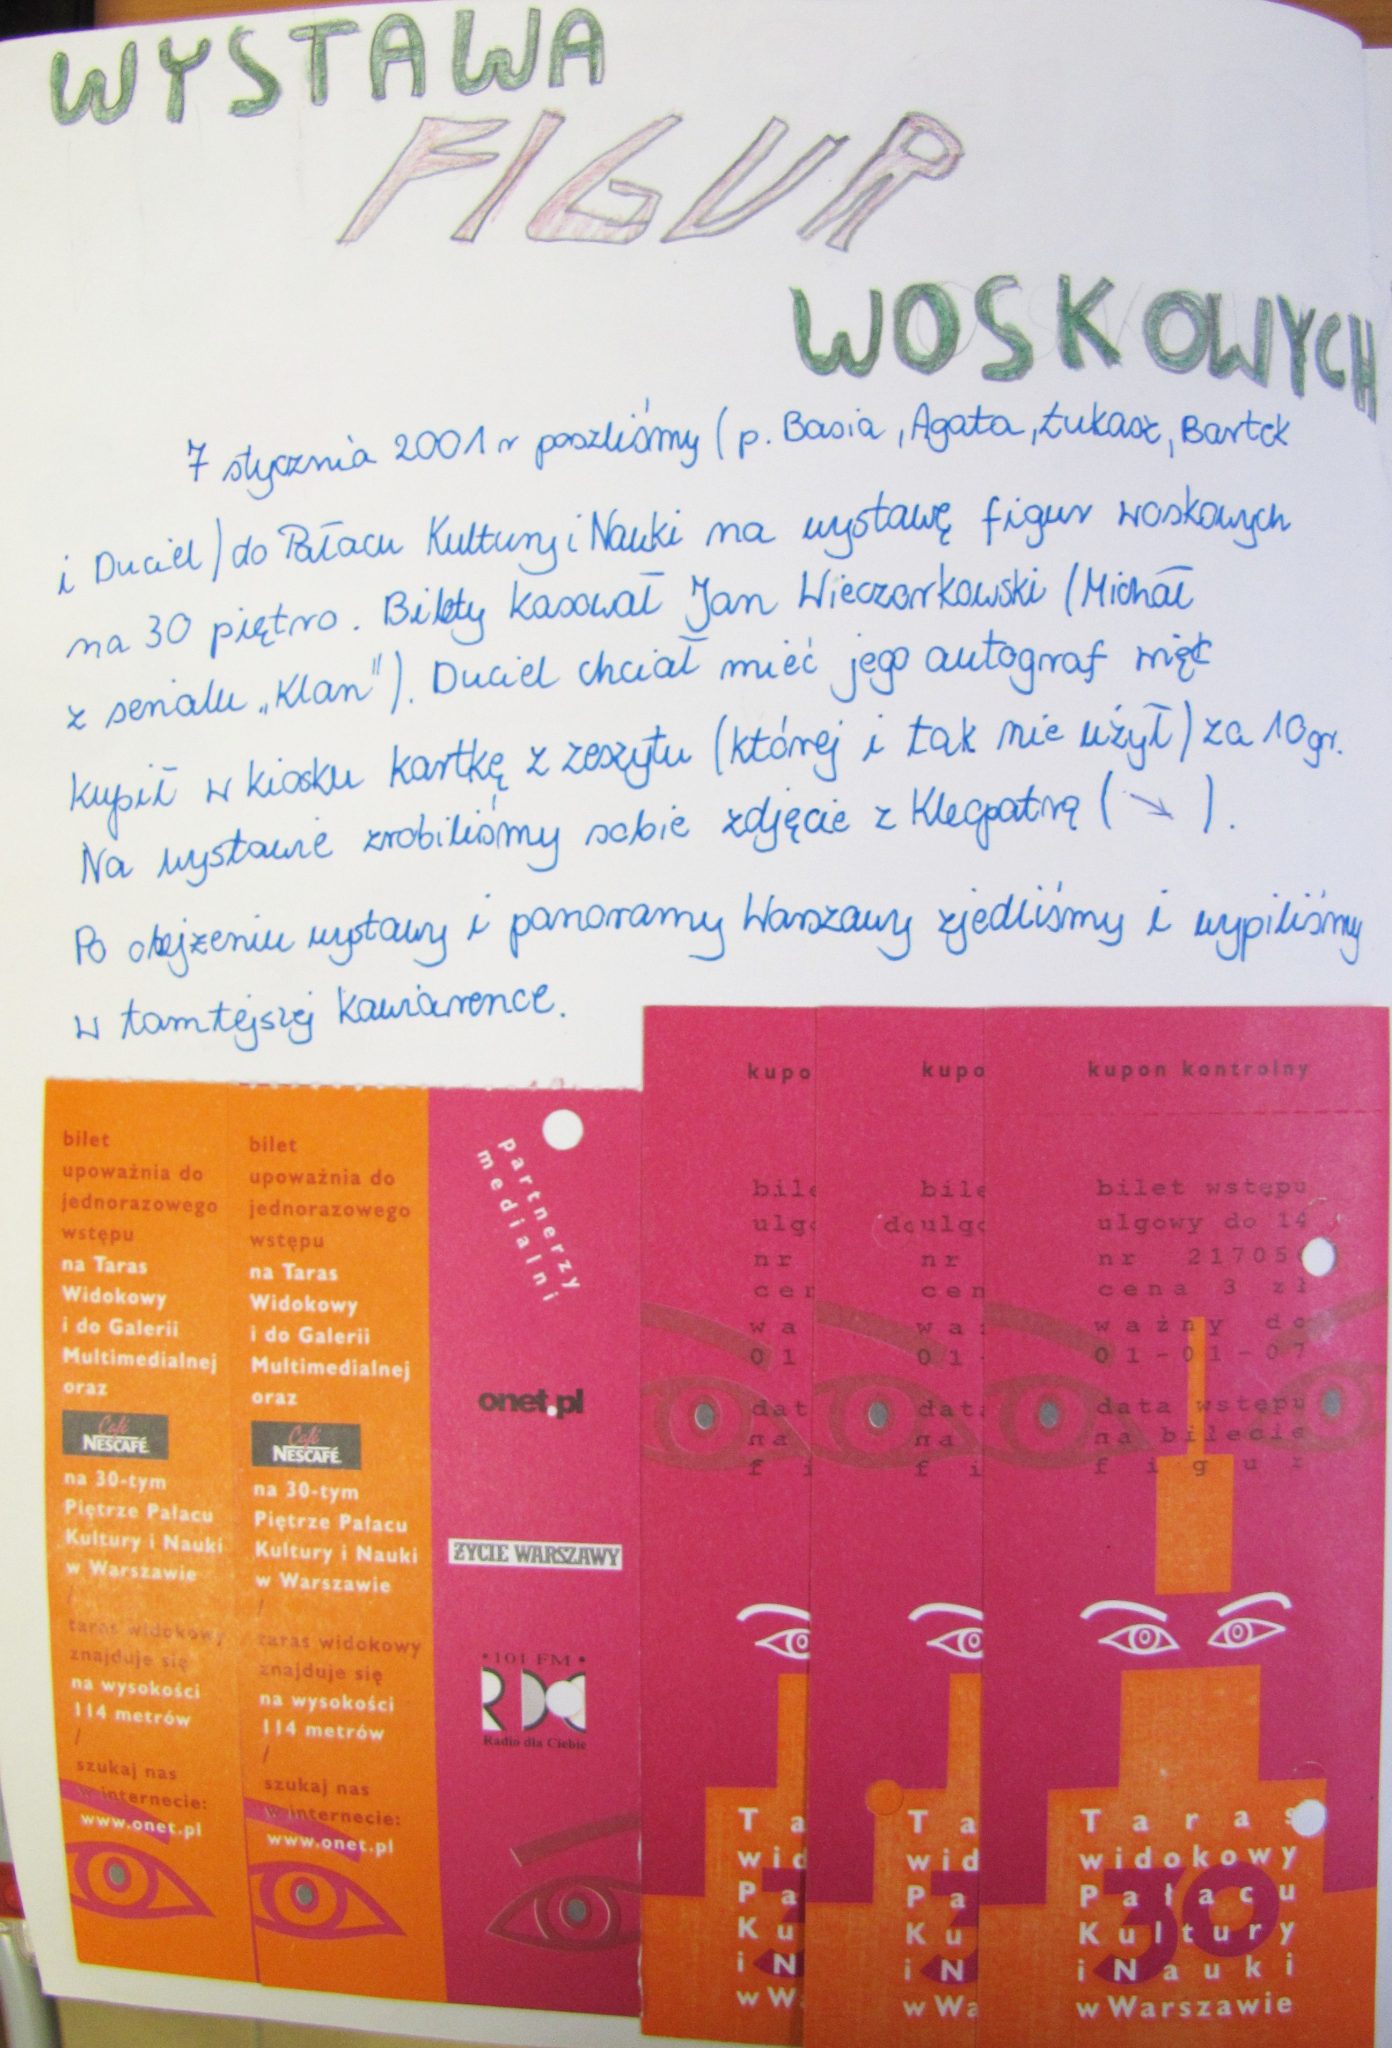 WYSTAWA
FIGUR
WOSKOWYCH
7 stycznia 2001 r poszliśmy (p. Basia, Agata, Łukasz, Bartek
i Duciel) do Pałacu Kultury i Nauki na wystawę figur woskowych
na 30 piętro. Bilety kasował Jan Wieczorkowski (Michał
z serialu „Klan"). Duciel chciał mieć jego autograf więc
kupił w kiosku kartkę z zeszytu (której i tak nie użył) za 10 gr.
Na wystawie zrobiliśmy sobie zdjęcie z Kleopatrą (↘).
Po obejżeniu wystawy i panoramy Warszawy zjedliśmy i wypiliśmy
w tamtejszej kawiarence.
bilet
upoważnia do
jednorazowego
wstępu
na Taras
Widokowy
i do Galerii
Multimedialnej
oraz
Café
NESCAFÉ
na 30-tym
Piętrze Pałacu
Kultury i Nauki
w Warszawie
/
taras widokowy
znajduje się
na wysokości
114 metrów
/
szukaj nas
w internecie:
www.onet.pl
bilet
upoważnia do
jednorazowego
wstępu
na Taras
Widokowy
i do Galerii
Multimedialnej
oraz
Café
NESCAFÉ
na 30-tym
Piętrze Pałacu
Kultury i Nauki
w Warszawie
/
taras widokowy
znajduje się
na wysokości
114 metrów
/
szukaj nas
w internecie:
www.onet.pl
partnerzy
medialni
onet.pl
ŻYCIE WARSZAWY
•101 FM•
RDC
Radio dla Ciebie
kupo
bile
ulgo
nr
cen
wa
01
dat
na
fi
Ta
wid
Pa
Ku
i N
w Wa
kupo
bile
doulgo
nr
cen
waż
01-
data
na
fi
Ta
wid
Pa
Ku
i N
w Wa
kupon kontrolny
bilet wstępu
ulgowy do 14
nr 21705
cena 3 zł
ważny do
01-01-07
data wstępu
na bilecie
figur
30
Taras
widokowy
Pałacu
Kultury
i Nauki
w Warszawie